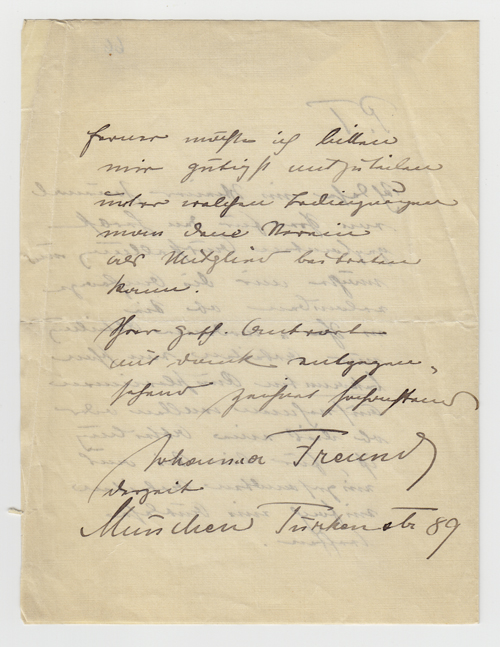 ferner möchte ich bitten
mir gütigst mitzuteilen
unter welchen Bedingungen
man dem Verein
als Mitglied beitreten
kann.
Ihrer gefl. Antwort
mit Dank entgegen-
sehend zeichnet hochachtend
Johanna Freund
derzeit
München Türkenstr 89